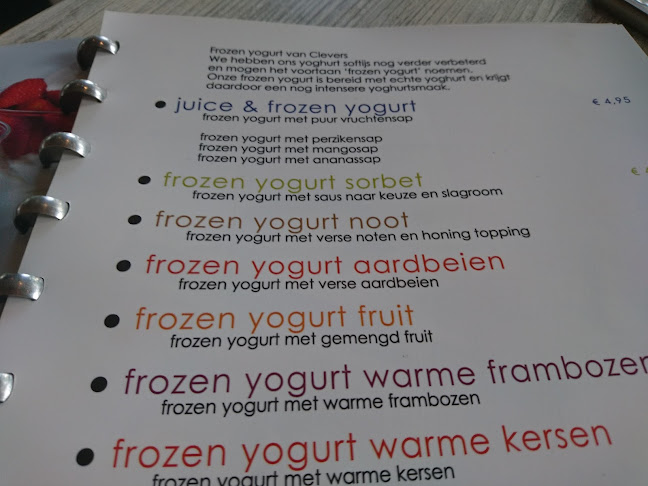 Frozen yogurt van Clevers
We hebben ons yoghurt softijs nog verder verbeterd
en mogen het voortaan 'frozen yogurt' noemen.
Onze frozen yogurt is bereid met echte yoghurt en krijgt
daardoor een nog intensere yoghurtsmaak.
• juice & frozen yogurt € 4,95
frozen yogurt met puur vruchtensap
frozen yogurt met perzikensap
frozen yogurt met mangosap
frozen yogurt met ananassap
• frozen yogurt sorbet €
frozen yogurt met saus naar keuze en slagroom
• frozen yogurt noot
frozen yogurt met verse noten en honing topping
• frozen yogurt aardbeien
frozen yogurt met verse aardbeien
• frozen yogurt fruit
frozen yogurt met gemengd fruit
• frozen yogurt warme frambozen
frozen yogurt met warme frambozen
• frozen yogurt warme kersen
frozen yogurt met warme kersen